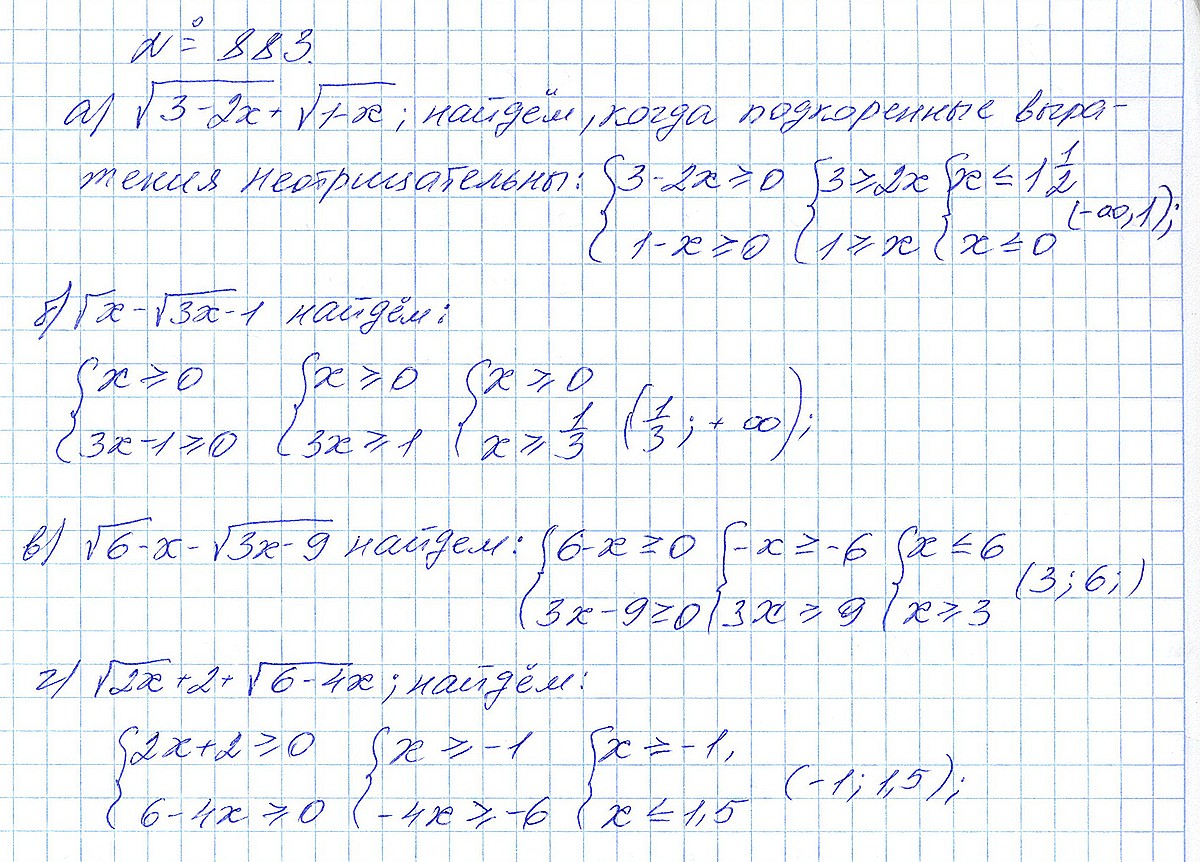 № 883.
а) √3-2x + √1-x ; найдём, когда подкоренные выра-
жения неотрицательны: { 3-2x ≥ 0 { 3 ≥ 2x { x ≤ 1 1/2
1-x ≥ 0 1 ≥ x x ≤ 0 (-∞, 1);
б) √x - √3x-1 найдём:
{ x ≥ 0 { x ≥ 0 { x ≥ 0
3x-1 ≥ 0 3x ≥ 1 x ≥ 1/3 (1/3 ; + ∞);
в) √6-x - √3x-9 найдем: { 6-x ≥ 0 { -x ≥ -6 { x ≤ 6
3x-9 ≥ 0 3x ≥ 9 x ≥ 3 (3; 6;)
г) √2x+2 + √6-4x ; найдём:
{ 2x+2 ≥ 0 { x ≥ -1 { x ≥ -1,
6-4x ≥ 0 -4x ≥ -6 x ≤ 1,5 (-1; 1,5);